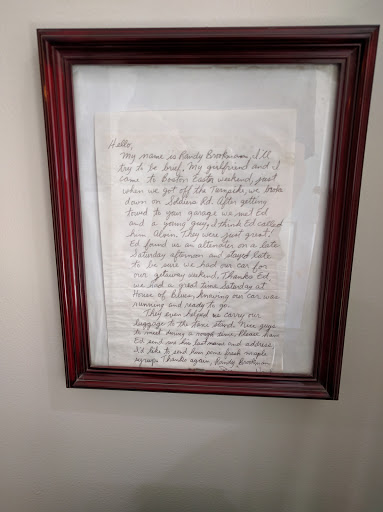 Hello,
My name is Randy Brookman, I'll
try to be brief. My girlfriend and I
came to Boston Easter weekend, just
when we got off the Turnpike, we broke
down on Soldiers Rd. After getting
towed to your garage we met Ed
and a young guy, I think Ed called
him Alvin. They were just great!
Ed found us an alternator on a late
Saturday afternoon and stayed late
to be sure we had our car for
our getaway weekend. Thanks Ed,
we had a great time Saturday at
House of Blues, knowing our car was
running and ready to go.
They even helped us carry our
luggage to the taxi stand. Nice guys
to meet during a rough time. Please have
Ed send me his last name and address
I'd like to send him some fresh maple
syrup. Thanks again, Randy Brookman